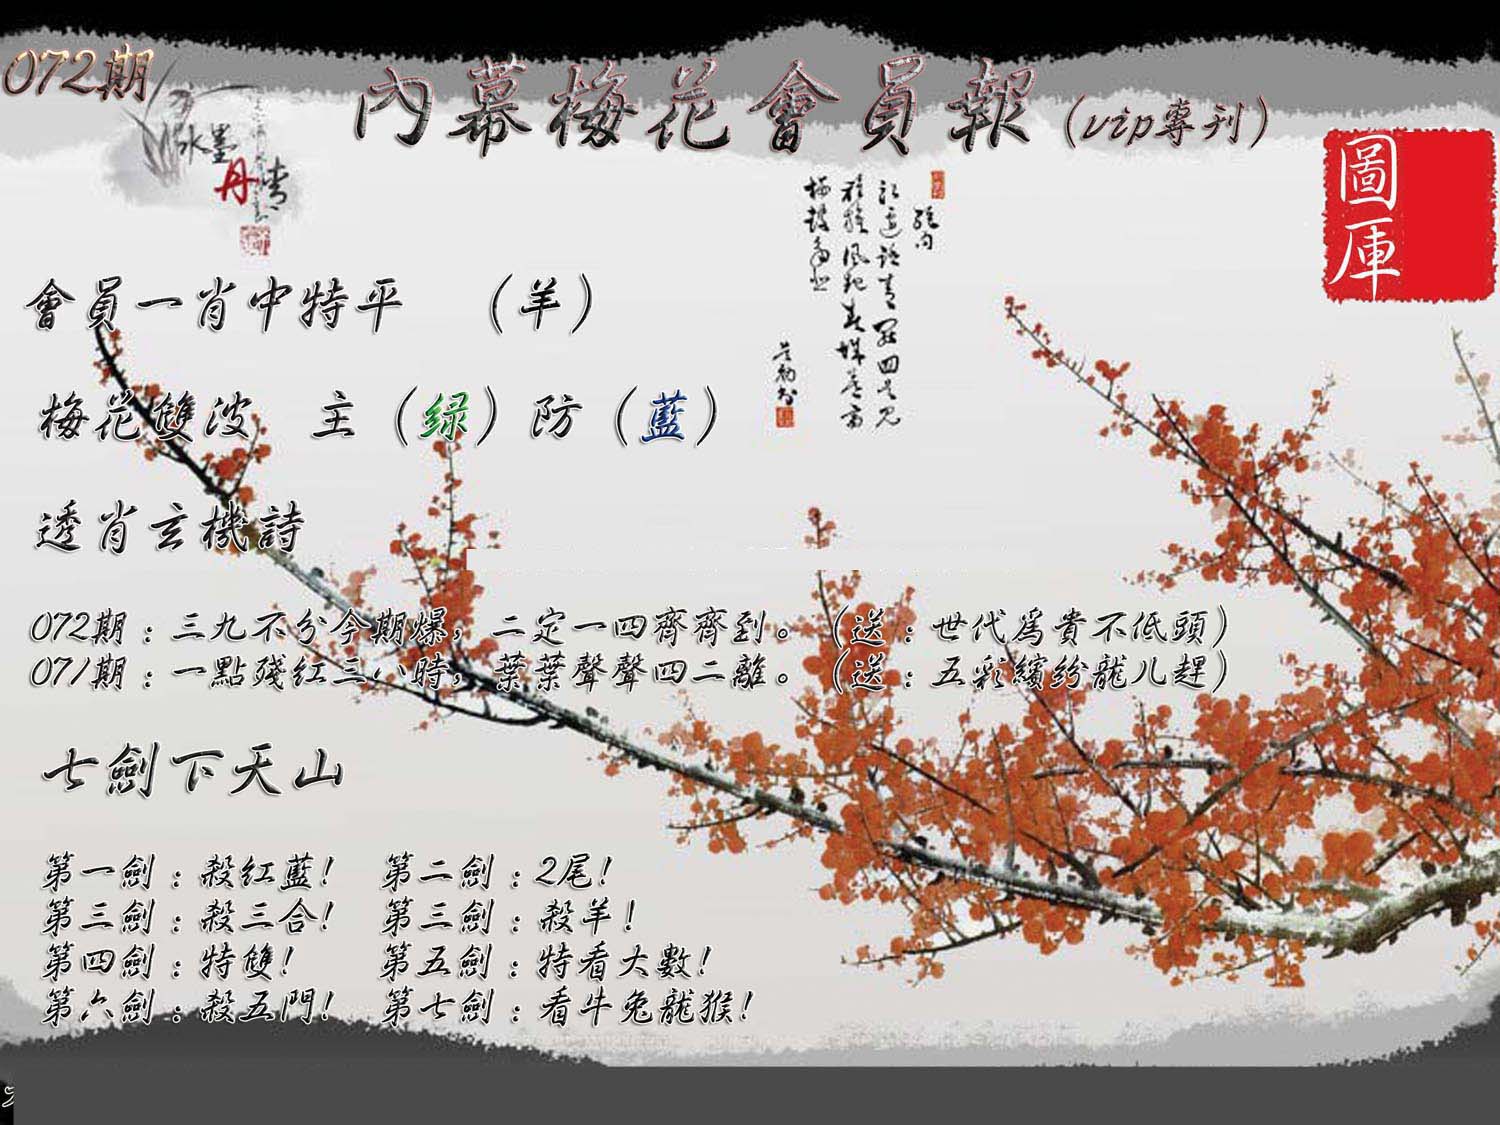 072期
內幕梅花會員報(vip專刊)
水墨
丹青
圖庫
會員一肖中特平 (羊)
梅花雙波 主(绿)防(藍)
透肖玄機詩
072期:三九不分今期爆,二定一四齊齊到。(送:世代為貴不低頭)
071期:一點殘红三八時,葉葉聲聲四二離。(送:五彩繽紛龍儿趕)
七劍下天山
第一劍:殺红藍! 第二劍:2尾!
第三劍:殺三合! 第三劍:殺羊!
第四劍:特雙! 第五劍:特看大數!
第六劍:殺五門! 第七劍:看牛兔龍猴!